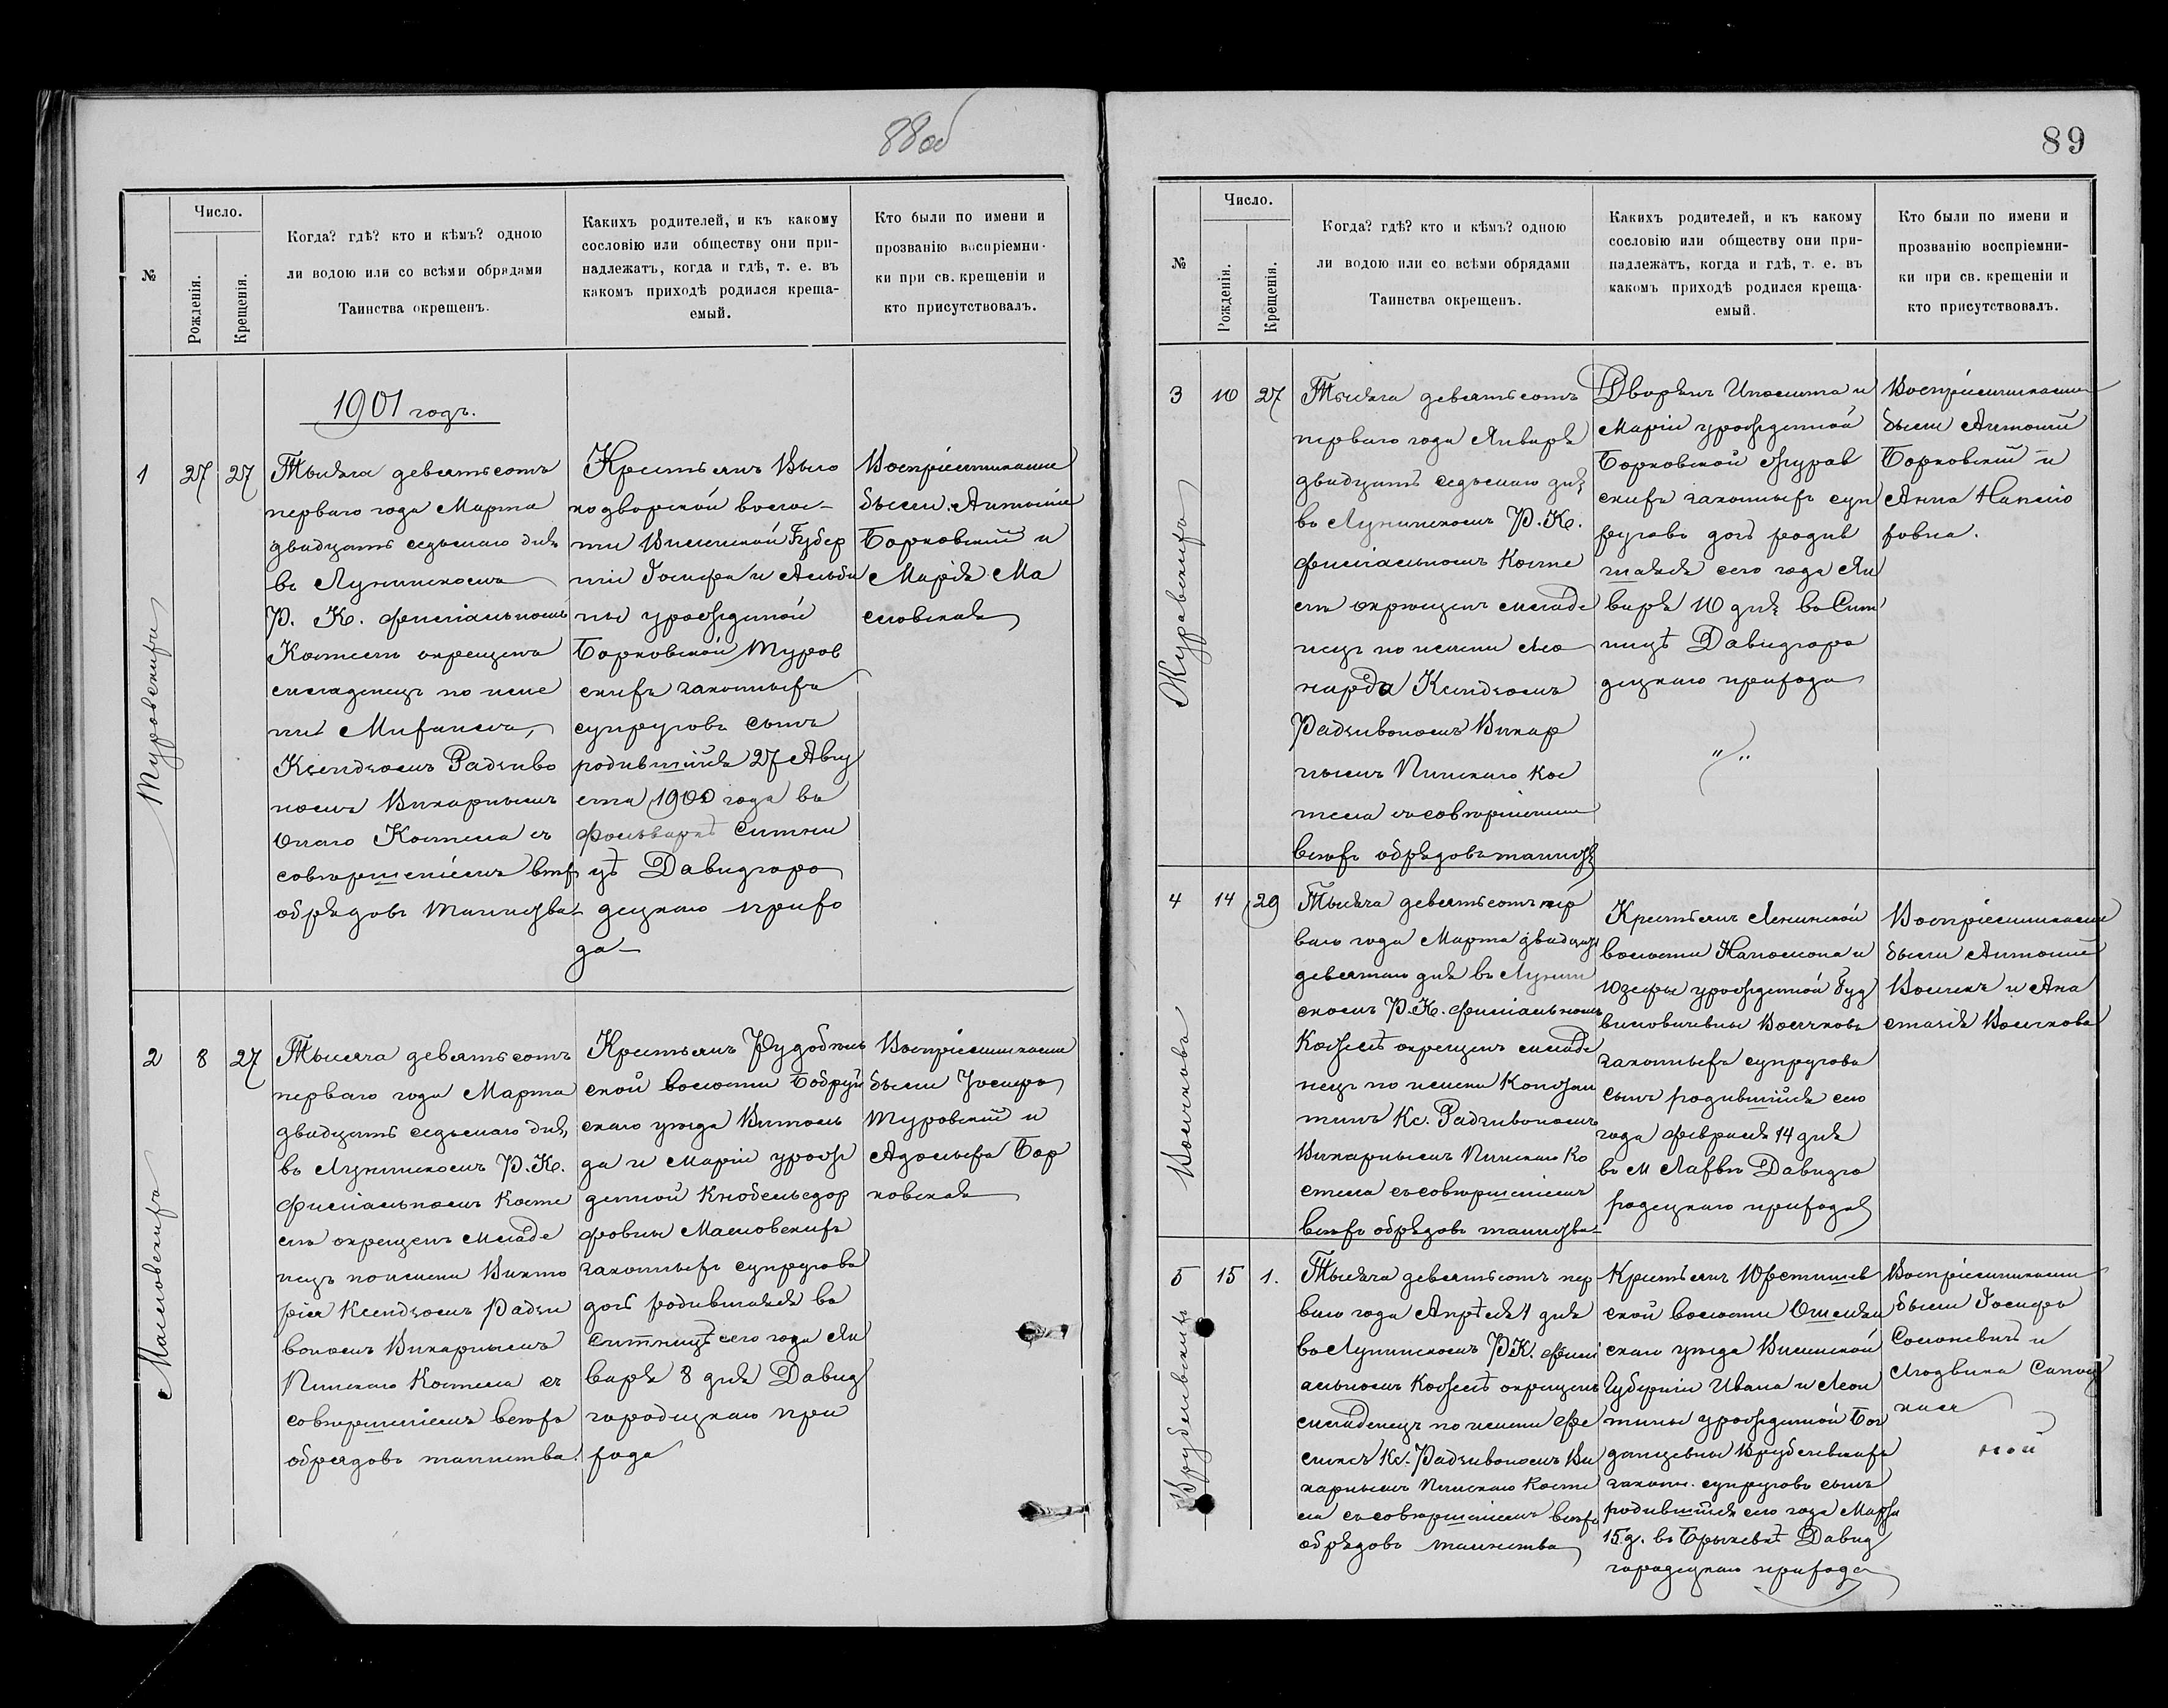 88 об
№
Число.
Рожденія.
Крещенія.
Когда? гдѣ? кто и кѣмъ? одною
ли водою или со всѣми обрядами
Таинства окрещенъ.
Какихъ родителей, и къ какому
сословію или обществу они при-
надлежатъ, когда и гдѣ, т. е. въ
какомъ приходѣ родился креща-
емый.
Кто были по имени и
прозванію воспріемни-
ки при св. крещеніи и
кто присутствовалъ.
1901 годъ.
1
27
27
Туровскихъ
Тысяча девятьсотъ
перваго года Марта
двадцать седьмаго дня
въ Лунинскомъ
Р. К. филіальномъ
Костелѣ окрещенъ
младенецъ по име
ни Михаилъ,
Ксендзомъ Радзиво
номъ Викарнымъ
Онаго Костела съ
совершеніемъ всѣхъ
обрядовъ таинства
Крестьянъ Высо
кодворской волос-
ти Виленской Губер
ніи Іосифа и Альби
ны урожденной
Борковской Туров
скихъ законныхъ
супруговъ сынъ
родившійся 27 Авгу
ста 1900 года въ
Фольваркѣ Ситни
цѣ Давидгоро
децкаго прихо
да
Воспріемниками
были Антоній
Борковскій и
Марія Ма
словская
2
8
27
Масловскихъ
Тысяча девятьсотъ
перваго года Марта
двадцать седьмаго дня,
въ Лунинскомъ Р. К.
филіальномъ Косте
лѣ окрещенъ младе
нецъ по имени Викто
рія Ксендзомъ Радзи
вономъ Викарнымъ
Пинскаго Костела съ
совершеніемъ всѣхъ
обрядовъ таинства.
Крестьянъ Рудобѣль
ской волости Бобруй
скаго уѣзда Витоль
да и Маріи урож
денной Кнобельсдор
фовны Масловскихъ
законныхъ супруговъ
дочь родившаяся въ
Ситницѣ сего года Ян
варя 8 дня Давид
городецкаго при
хода
Воспріемниками
были Іосифъ
Туровскій и
Адольфа Бор
ковская
89
№
Число.
Рожденія.
Крещенія.
Когда? гдѣ? кто и кѣмъ? одною
ли водою или со всѣми обрядами
Таинства окрещенъ.
Какихъ родителей, и къ какому
сословію или обществу они при-
надлежатъ, когда и гдѣ, т. е. въ
какомъ приходѣ родился креща-
емый.
Кто были по имени и
прозванію воспріемни-
ки при св. крещеніи и
кто присутствовалъ.
3
10
27
Журавскихъ
Тысяча девятьсотъ
перваго года Января
двадцать седьмаго дня
въ Лунинскомъ Р. К.
филіальномъ Косте
лѣ окрещенъ младе
нецъ по имени Лео
нарда Ксендзомъ
Радзивономъ Викар
нымъ Пинскаго Кос
тела съ совершеніемъ
всѣхъ обрядовъ таинства
Дворянъ Иполита и
Маріи урожденной
Борковской Журав
скихъ законныхъ суп
руговъ дочь родив
шаяся сего года Ян
варя 10 дня въ Сит
ницѣ Давидгоро
децкаго прихода
Воспріемниками
были Антоній
Борковскій и
Анна
фовна.
4
14
29
Волчкова
Тысяча девятьсотъ пер
ваго года Марта двадцать
девятаго дня въ Лунин
скомъ Р.К. филіальномъ
Костелѣ окрещенъ младе
нецъ по имени Констан
тинъ Кс. Радзивономъ
Викарнымъ Пинскаго Ко
стела съ совершеніемъ
всѣхъ обрядовъ таинства
Крестьянъ Ленинской
волости Наполеона и
Юзефы урожденной Буд
виловичевны Волчковъ
законныхъ супруговъ
сынъ родившійся сего
года февраля 14 дня
въ м Лахвѣ Давидго
родецкаго прихода
Воспріемниками
были Антоній
Волчекъ и Ана
стазія Волчкова
5
15
1.
Врублевскихъ
Тысяча девятьсотъ пер
ваго года Апрѣля 1 дня
въ Лунинскомъ Р.К. фили
альномъ Костелѣ окрещенъ
младенецъ по имени Фе
ликсъ Кс. Радзивономъ Ви
карнымъ Пинскаго Косте
ла съ совершеніемъ всѣхъ
обрядовъ таинства
Крестьянъ
ской волости Ошмян
скаго уѣзда Виленской
Губерніи Ивана и Леон
тины урожденной Бог
данцевны Врублевскихъ
законн. супруговъ сынъ
родившійся сего года Марта
15 д. въ Давид
городецкаго прихода
Воспріемниками
были Іосифъ
Солоневичъ и
Людвика